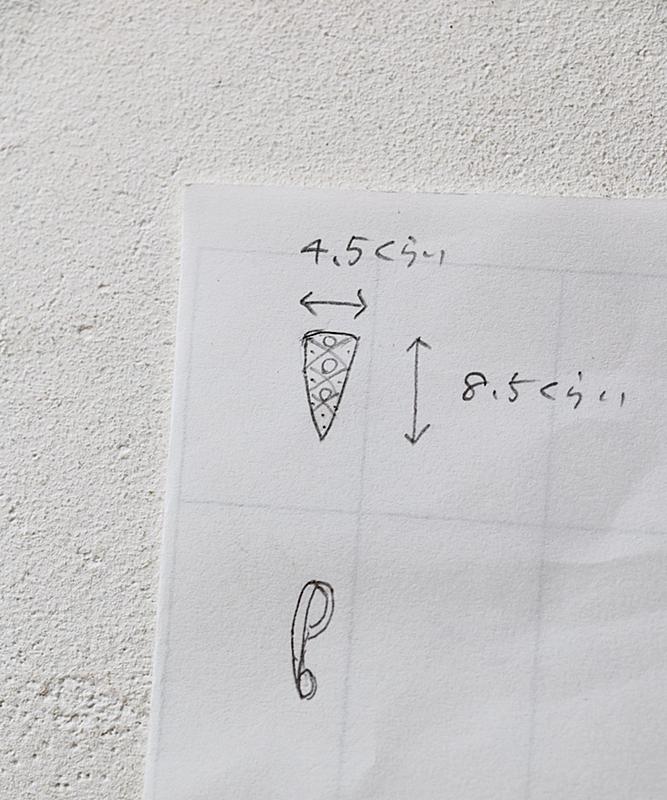 4.5くらい
8.5くらい